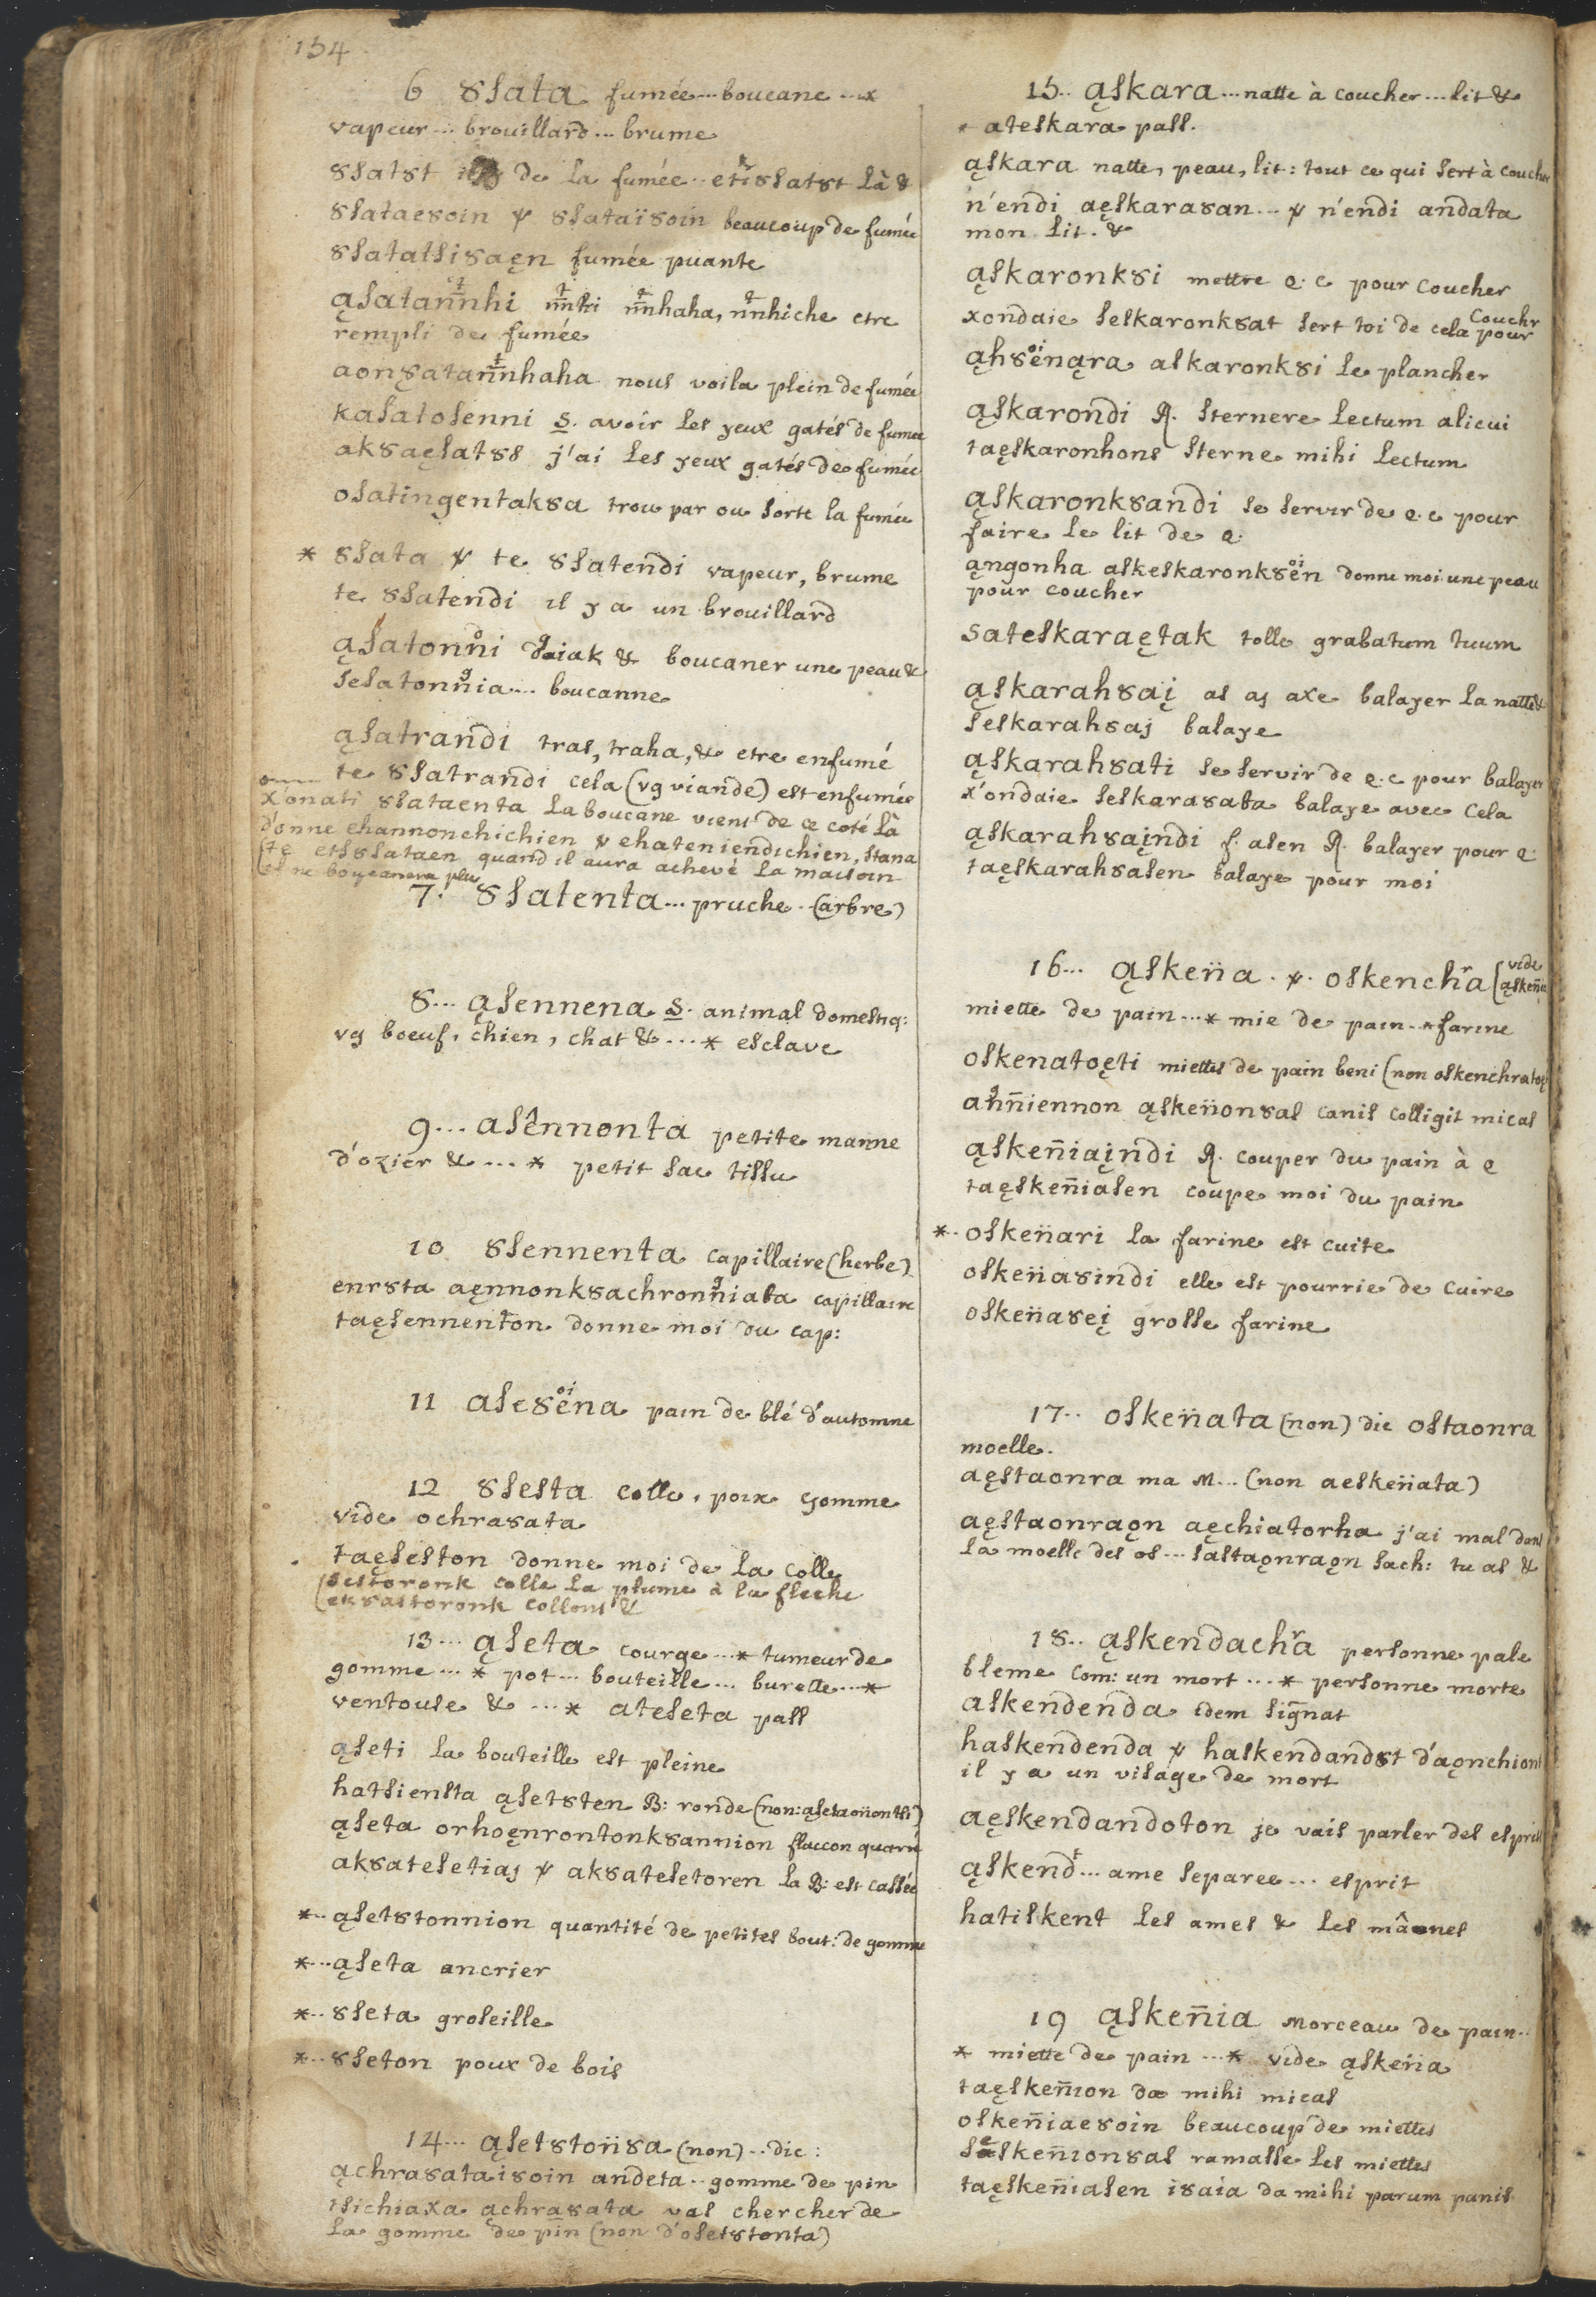 154
6 8sata fumée... boucane ...x
vapeur... brouillard... brume
8sat8t il de la fumée .. etis8at8t là &
8satae8oin & 8sataï8oin beaucoup de fumée
8satatsi8aęn fumée puante
etre
rempli de fumée
nous voila plein de fumée
kasatosenni S. avoir les yeux gatés de fumée
ak8aęsat88 j'ai les yeux gatés de fumée
osatingentak8a trou par ou sorte la fumée
* 8sata & te 8satendi vapeur, brume
te 8satendi il y a un brouillard
ąsatonni & boucaner une peau &
sesatonnia... boucanne
ąsatrandi tras, traha, & etre enfumé
te 8satrandi cela (vg viande) est enfumée
x'onati 8sataenta la boucane vient de ce coté là
d'onne ehannonchichien & ehateniendichien, stana
quand il aura achevé la maison
et ne boucanera plus
7. 8satenta... pruche.. (arbre)
8... ąsennena S. animal domestiq:
vg boeuf, chien, chat &... * esclave
9... asennonta petite manne
d'ozier &... * petit sac tissu
10 8sennenta capillaire (herbe)
en8sta aęnnonk8achronniata capillaire
taęsennenton donne moi du cap:
11 ase8ena pain de blé d'automne
12 8sesta colle, poix gomme
vide ochra8ata
taęseston donne moi de la colle
sestoronk colle la plume à la fleche
ek8astoronk collons &
13... ąseta courge...* tumeur de
gomme... * pot... bouteille... burette...*
ventouse &... * ateseta pass
ąseti la bouteille est pleine
hatsiensta ąset8ten B: ronde (non:
ąseta orhoęnrontonk8annion flaccon quarré
ak8atesetiaj & ak8atesetoren la B: est cassée
*.. ąset8tonnion quantité de petites bout: de gomme
*... ąseta ancrier
*.. 8seta groseille
*.. 8seton poux de bois
14... ąset8ton8a (non)... dic:
ąchra8atai8oin andeta.. gomme de pin
tsichiaxa ąchra8ata vas chercher de
la gomme de pin (non d'oset8tonta)
15.. ąskara... natte à coucher... lit &
* ateskara pass.
ąskara natte, peau, lit: tout ce qui sert à coucher
n'endi aęskara8an... & n'endi andata
mon lit. &
ąskaronk8i mettre q.c pour coucher
xondaie seskaronk8at sert toi de cela pour couchr
ąh8enąra askaronk8i le plancher
ąskarondi R. sternere lectum alicui
taęskaronhons sterne mihi lectum
ąskaronk8andi se servir de q.c pour
faire le lit de q.
ąngonha askeskaronk8en donne moi une peau
pour coucher
sateskaraętak tolle grabatum tuum
ąskarah8aį as aj axe balayer la natte &
seskarah8aj balaye
ąskarah8ati se servir de q.c pour balayer
x'ondaie seskara8ata balaye avec cela
ąskarah8aįndi f. asen R. balayer pour q.
taęskarah8asen balaye pour moi
16... ąskeña. &. oskenchra [vide
ąskeñia
miette de pain...* mie de pain..* farine
oskenatoęti miettes de pain beni (non oskenchratoę
ahñiennon ąskeñon8as canis colligit micas
ąskeñiaįndi R. couper du pain à q
taęskeñiasen coupe moi du pain
*.. oskeñari la farine est cuite
oskeña8indi elle est pourrie de cuire
oskeña8eį grosse farine
17.. oskeñata (non) dic ostaonra
moelle.
aęstaonra ma M... (non aeskeñata)
aęstaonraǫn aęchiatorha j'ai mal dans
la moelle des os... sastaǫnraǫn sach: tu as &
18.. ąskendachra personne pale
bleme com: un mort... * personne morte
askendenda idem signat
haskendenda & haskendand8t d'aǫnchiont
il y a un visage de mort
aęskendandoton je vais parler des esprits
ąskend... ame separee... esprit
hatiskent les ames & les mânes
19 ąskeñia morceau de pain..
* miette de pain...* vide ąskeña
taęskeñion da mihi micas
oskeñiae8oin beaucoup de miettes
seskeñion8as ramasse les miettes
taęskeñiasen i8aia da mihi parum panis